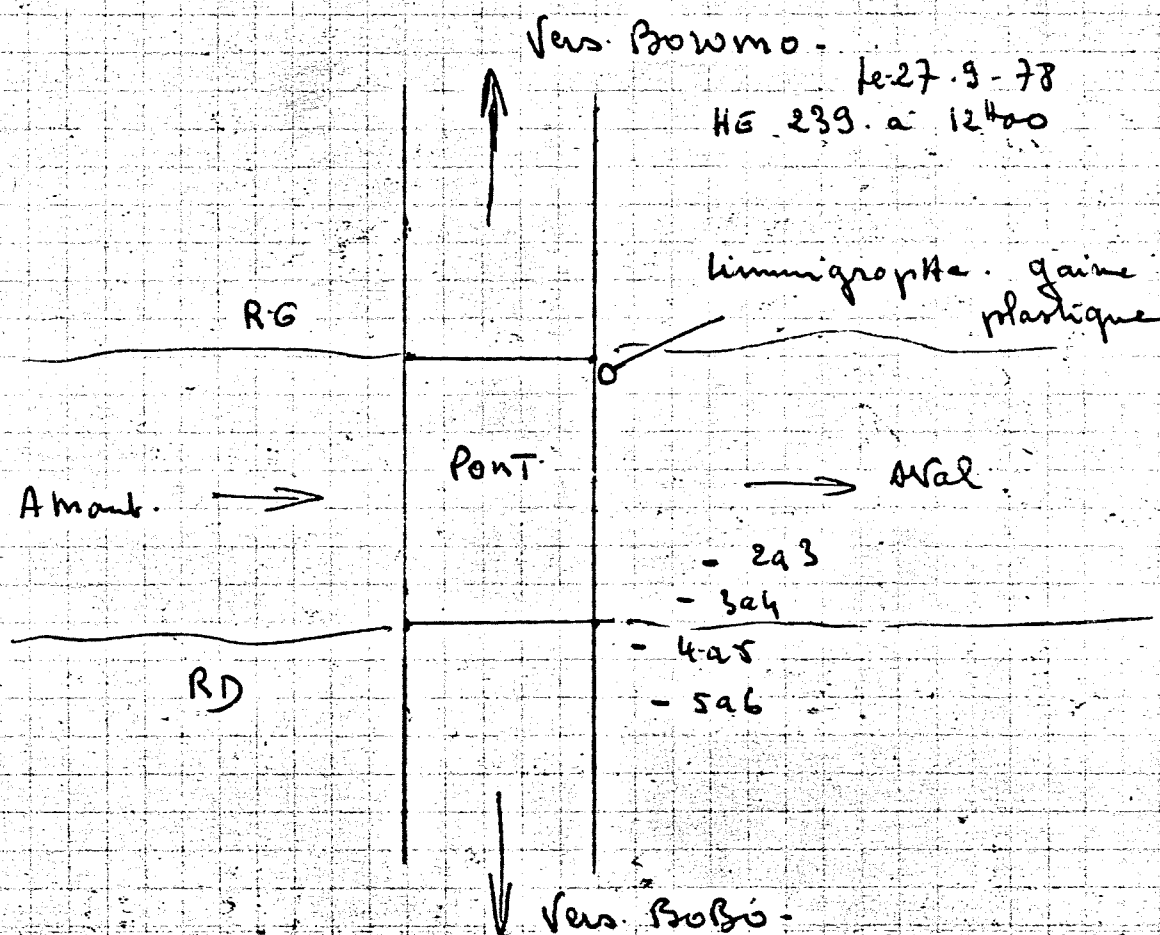 Vers. Boromo -
Le 27.9-78
HE 239. a 12H00
limnigrapHe. gaine
plastique
R.G
PonT
Amont.
AVal.
- 2a3
- 3a4
- 4a5
- 5a6
RD
Vers. BoBo -